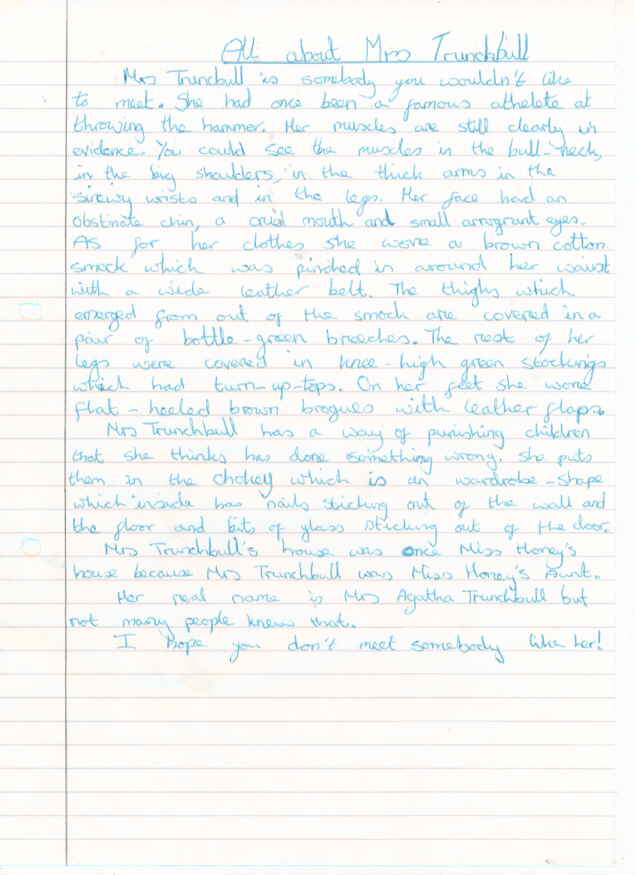 All about Mrs Trunchbull
Mrs Truncbull is somebody you wouldn't like
to meet. She had once been a famous athelete at
throwing the hammer. Her muscles are still clearly in
evidence. You could see the muscles in the bull-neck,
in the big shoulders, in the thick arms in the
sinewy wrists and in the legs. Her face had an
obstinate chin, a cruel mouth and small arrogrant eyes.
As for her clothes she wore a brown cotton
smock which was pinched in around her waist
with a wide leather belt. The thighs which
emerged from out of the smock are covered in a
pair of bottle-green breeches. The rest of her
legs were covered in knee-high green stockings
which had turn-up-tops. On her feet she wore
flat-heeled brown brogues with leather flaps.
Mrs Trunchbull has a way of punishing children
that she thinks has done something wrong. She puts
them in the chokey which is an wardrobe-shape
which inside has nails sticking out of the wall and
the floor and bits of glass sticking out of the door.
Mrs Trunchbull's house was once Miss Honey's
house because Mrs Trunchbull was Miss Honey's Aunt.
Her real name is Mrs Agatha Trunchbull but
not many people knew that.
I hope you don't meet somebody like her!